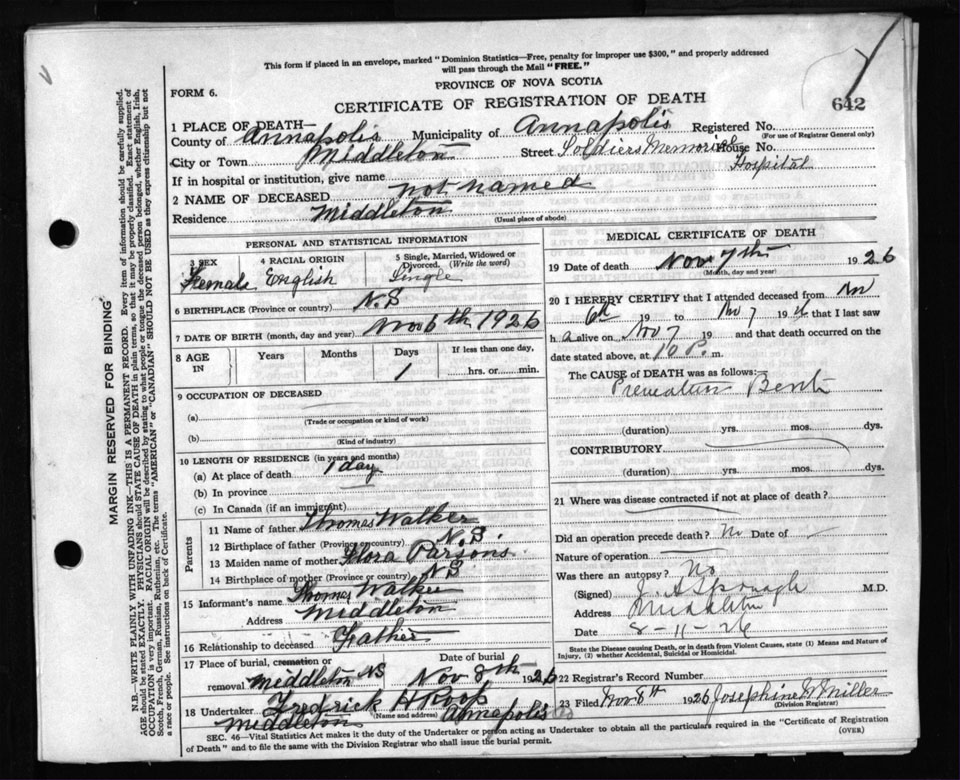 This form if placed in an envelope, marked "Dominion Statistics—Free, penalty for improper use $300," and properly addressed
will pass through the Mail "FREE."
PROVINCE OF NOVA SCOTIA
FORM 6.
CERTIFICATE OF REGISTRATION OF DEATH
642
1 PLACE OF DEATH—
County of Annapolis Municipality of Annapolis Registered No.
(For use of Registrar General only)
City or Town Middleton Street Soldiers Memorial House No.
Hospital
If in hospital or institution, give name
2 NAME OF DECEASED not named
Residence Middleton
(Usual place of abode)
PERSONAL AND STATISTICAL INFORMATION
3 SEX 4 RACIAL ORIGIN 5 Single, Married, Widowed or Divorced. (Write the word)
Female English Single
6 BIRTHPLACE (Province or country) N.S
7 DATE OF BIRTH (month, day and year) Nov 6th 1926
8 AGE IN Years Months Days If less than one day,
1 hrs. or min.
9 OCCUPATION OF DECEASED
(a)
(Trade or occupation or kind of work)
(b)
(Kind of industry)
10 LENGTH OF RESIDENCE (in years and months)
(a) At place of death 1 day
(b) In province
(c) In Canada (if an immigrant)
Parents
11 Name of father Thomas Walker
12 Birthplace of father (Province or country) N.S.
13 Maiden name of mother Flora Parsons
14 Birthplace of mother (Province or country) N S
15 Informant's name Thomas Walker
Address Middleton
16 Relationship to deceased Father
17 Place of burial, cremation or removal Middleton NS
Date of burial Nov 8th 1926
18 Undertaker Fredrick H Roop
(Name and address)
Middleton Annapolis Co
MEDICAL CERTIFICATE OF DEATH
19 Date of death Nov 7th 1926
(Month, day and year)
20 I HEREBY CERTIFY that I attended deceased from Nov
6th 19 to Nov 7 1926 that I last saw
h alive on Nov 7 19 and that death occurred on
date stated above, at 10 P. m.
The CAUSE of DEATH was as follows:
Premature Birth
(duration) yrs. mos. dys.
CONTRIBUTORY
(duration) yrs. mos. dys.
21 Where was disease contracted if not at place of death?
Did an operation precede death? No Date of
Nature of operation
Was there an autopsy? No
(Signed) J. A Sponagle M.D.
Address Middleton
Date 8-11-26
State the Disease causing Death, or in death from Violent Causes, state (1) Means and Nature of
Injury, (2) whether Accidental, Suicidal or Homicidal.
22 Registrar's Record Number
23 Filed Nov 8th 1926 Josephine Miller
(Division Registrar)
SEC. 46—Vital Statistics Act makes it the duty of the Undertaker or person acting as Undertaker to obtain all the particulars required in the "Certificate of Registration
of Death" and to file the same with the Division Registrar who shall issue the burial permit.
(OVER)
MARGIN RESERVED FOR BINDING
N.B.—WRITE PLAINLY WITH UNFADING INK—THIS IS A PERMANENT RECORD. Every item of information should be carefully supplied.
AGE should be stated EXACTLY. PHYSICIANS should STATE CAUSE OF DEATH in plain terms, so that it may be properly classified. Exact statement of
OCCUPATION is very important. RACIAL ORIGIN will be described by stating to what people or tongue the deceased person belonged, whether English, Irish,
Scotch, French, German, Russian, Ruthenian, etc. The terms "AMERICAN" or "CANADIAN" SHOULD NOT BE USED as they express citizenship but not
a race or people. See instructions on back of Certificate.